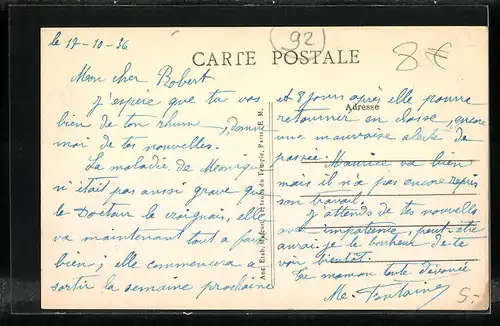 le 17-10-36
(92)
8€
CARTE POSTALE
Adresse
Mon cher Robert
J'espère que tu vas
bien de ton rhume, donne
moi de tes nouvelles.
La maladie de Monique
n'était pas aussi grave que
le Docteur le craignait, elle
va maintenant tout a fait
bien; elle commencera a
sortir la semaine prochaine
Anc. Etab. 3, rue du Temple, Paris
et 8 jours après elle pourra
retourner en classe, encore
une mauvaise alerte de
passée. Maurice va bien
mais il n'a pas encore repris
son travail.
J'attends de tes nouvelles
avec impatience, peut-être
aurai-je le bonheur de te
voir bientôt.
Ta maman toute dévouée
Me. Fontaine
5.-